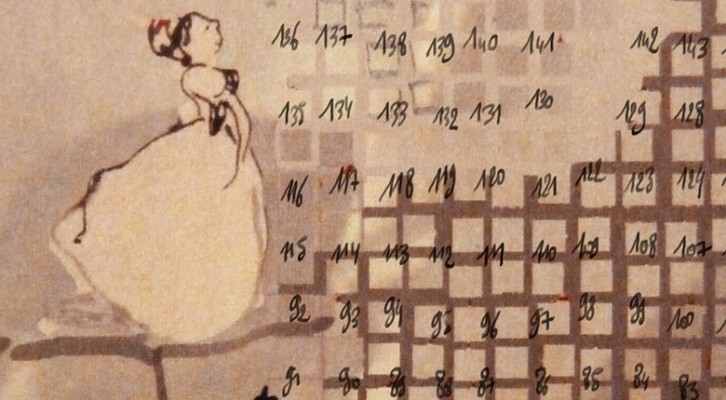 136 137 138 139 140 141 142 143
135 134 133 132 131 130 129 128
116 117 118 119 120 121 122 123 124
115 114 113 112 111 110 109 108 107
92 93 94 95 96 97 98 99 100
91 90 89 88 87 86 85 84 83